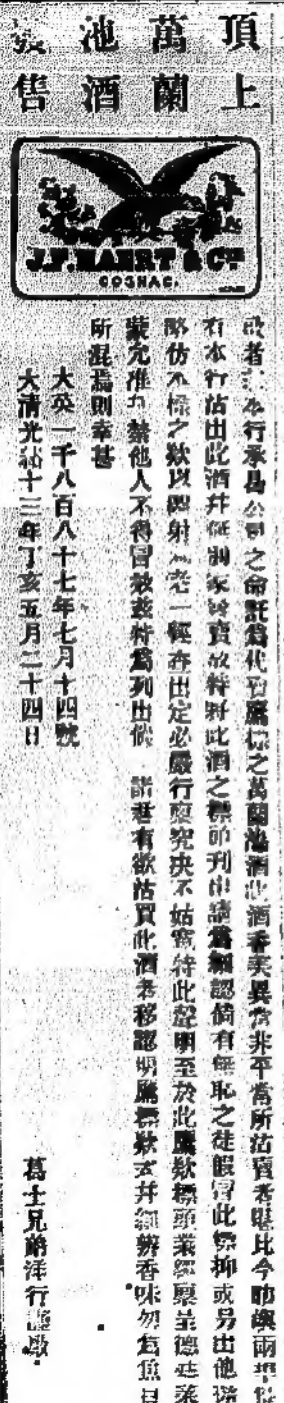 頂上
萬蘭
池酒
發售
J.F. HAERT & Co
COGNAC.
啟者 本行承 公司之命託爲代 鷹標之萬蘭池酒此酒香美異常非平常所沽賣者堪比今 澳兩
有本行沽出此酒并無別家 賣故特將此酒之標頭刊出請爲細認倘有無恥之徒假冒此標抑或另出他
仿 標之欵以 射 者一經 出定必嚴行 究決不姑寬特此聲明至於此鷹欵標頭業經稟呈德
蒙允准 禁他人不得冒效茲特爲列出俾 諸君有欲沽買此酒者 認明鷹標欵式并細辨香味勿爲魚目
所混焉則幸甚
大英一千八百八十七年七月十四號
大清光緒十三年丁亥五月二十四日
葛士兄弟洋行謹啟